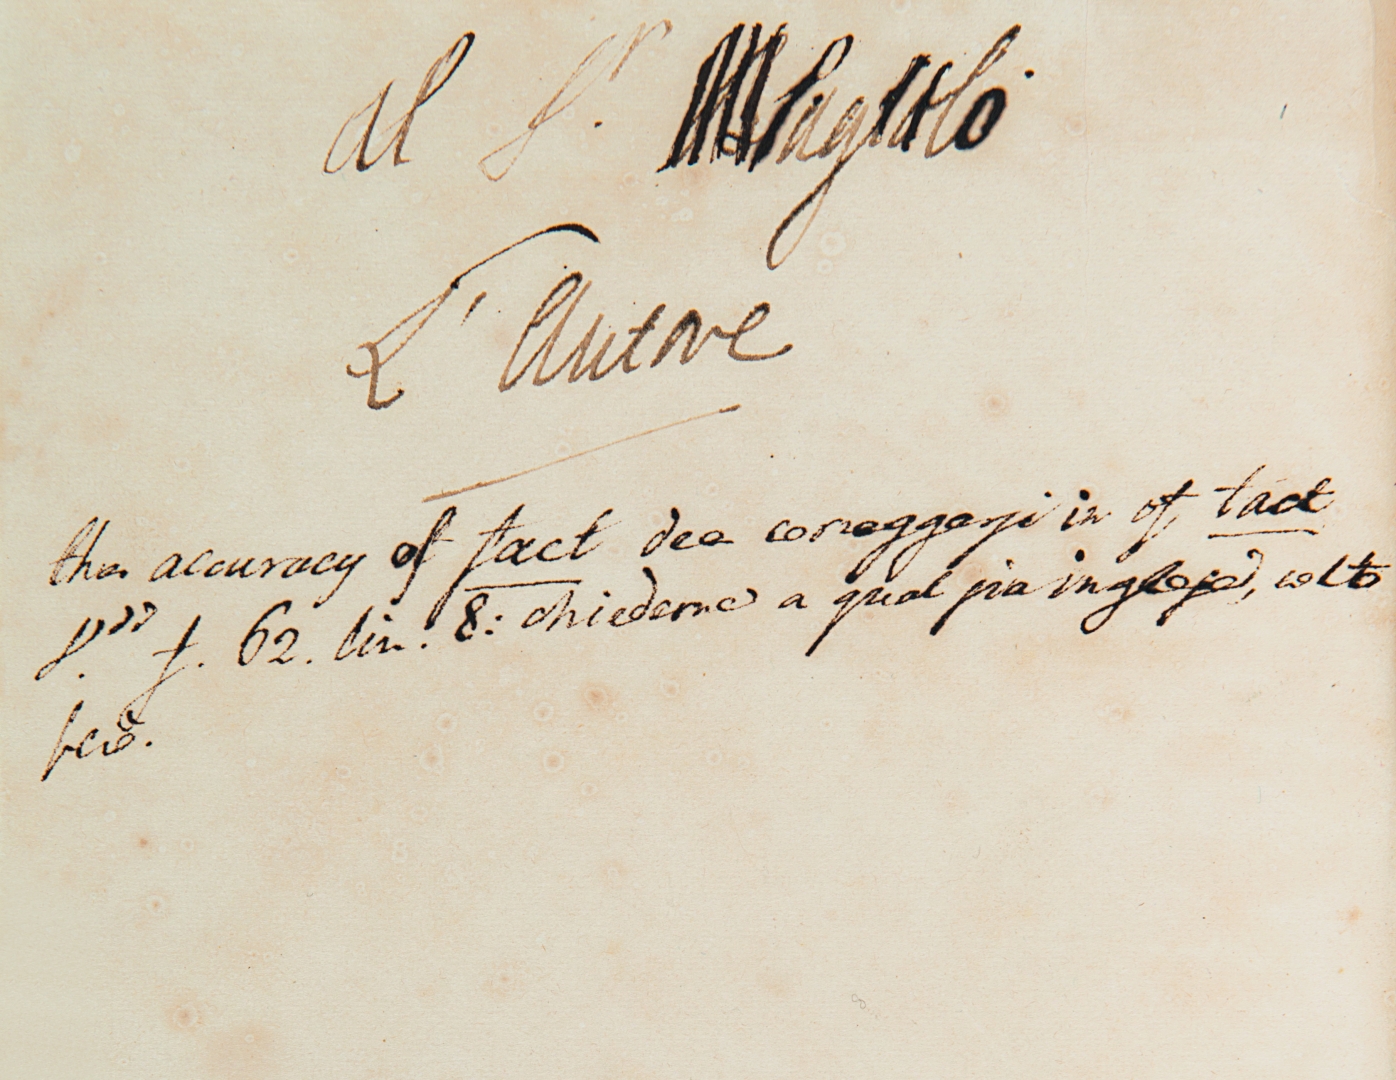 al Sr.
L'Autore
the accuracy of fact dee correggersi in of tact
f. 62. lin. 8: chiederne a qual sia inglese, colto
però.